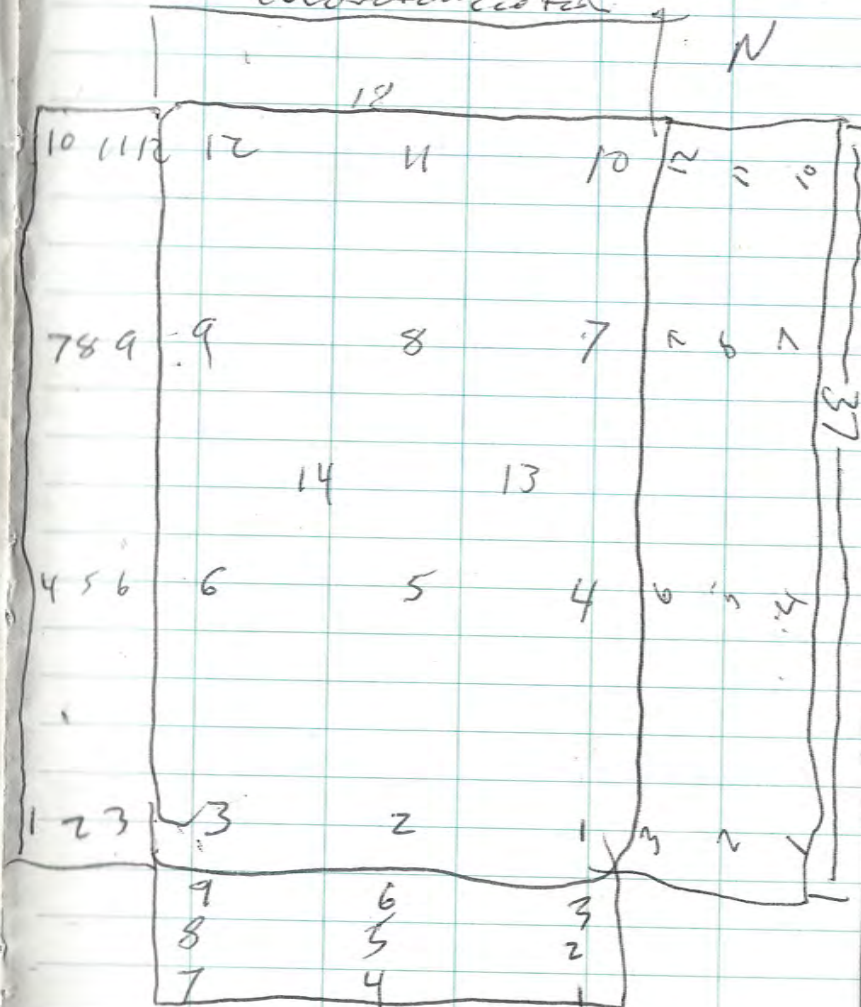 N
18
10 11 12 12 11 10 12 11 10
7 8 9 9 8 7 7
37
14 13
4 5 6 6 5 4 6 5 4
1 2 3 3 2 1 3 2 1
9 6 3
8 5 2
7 4 1